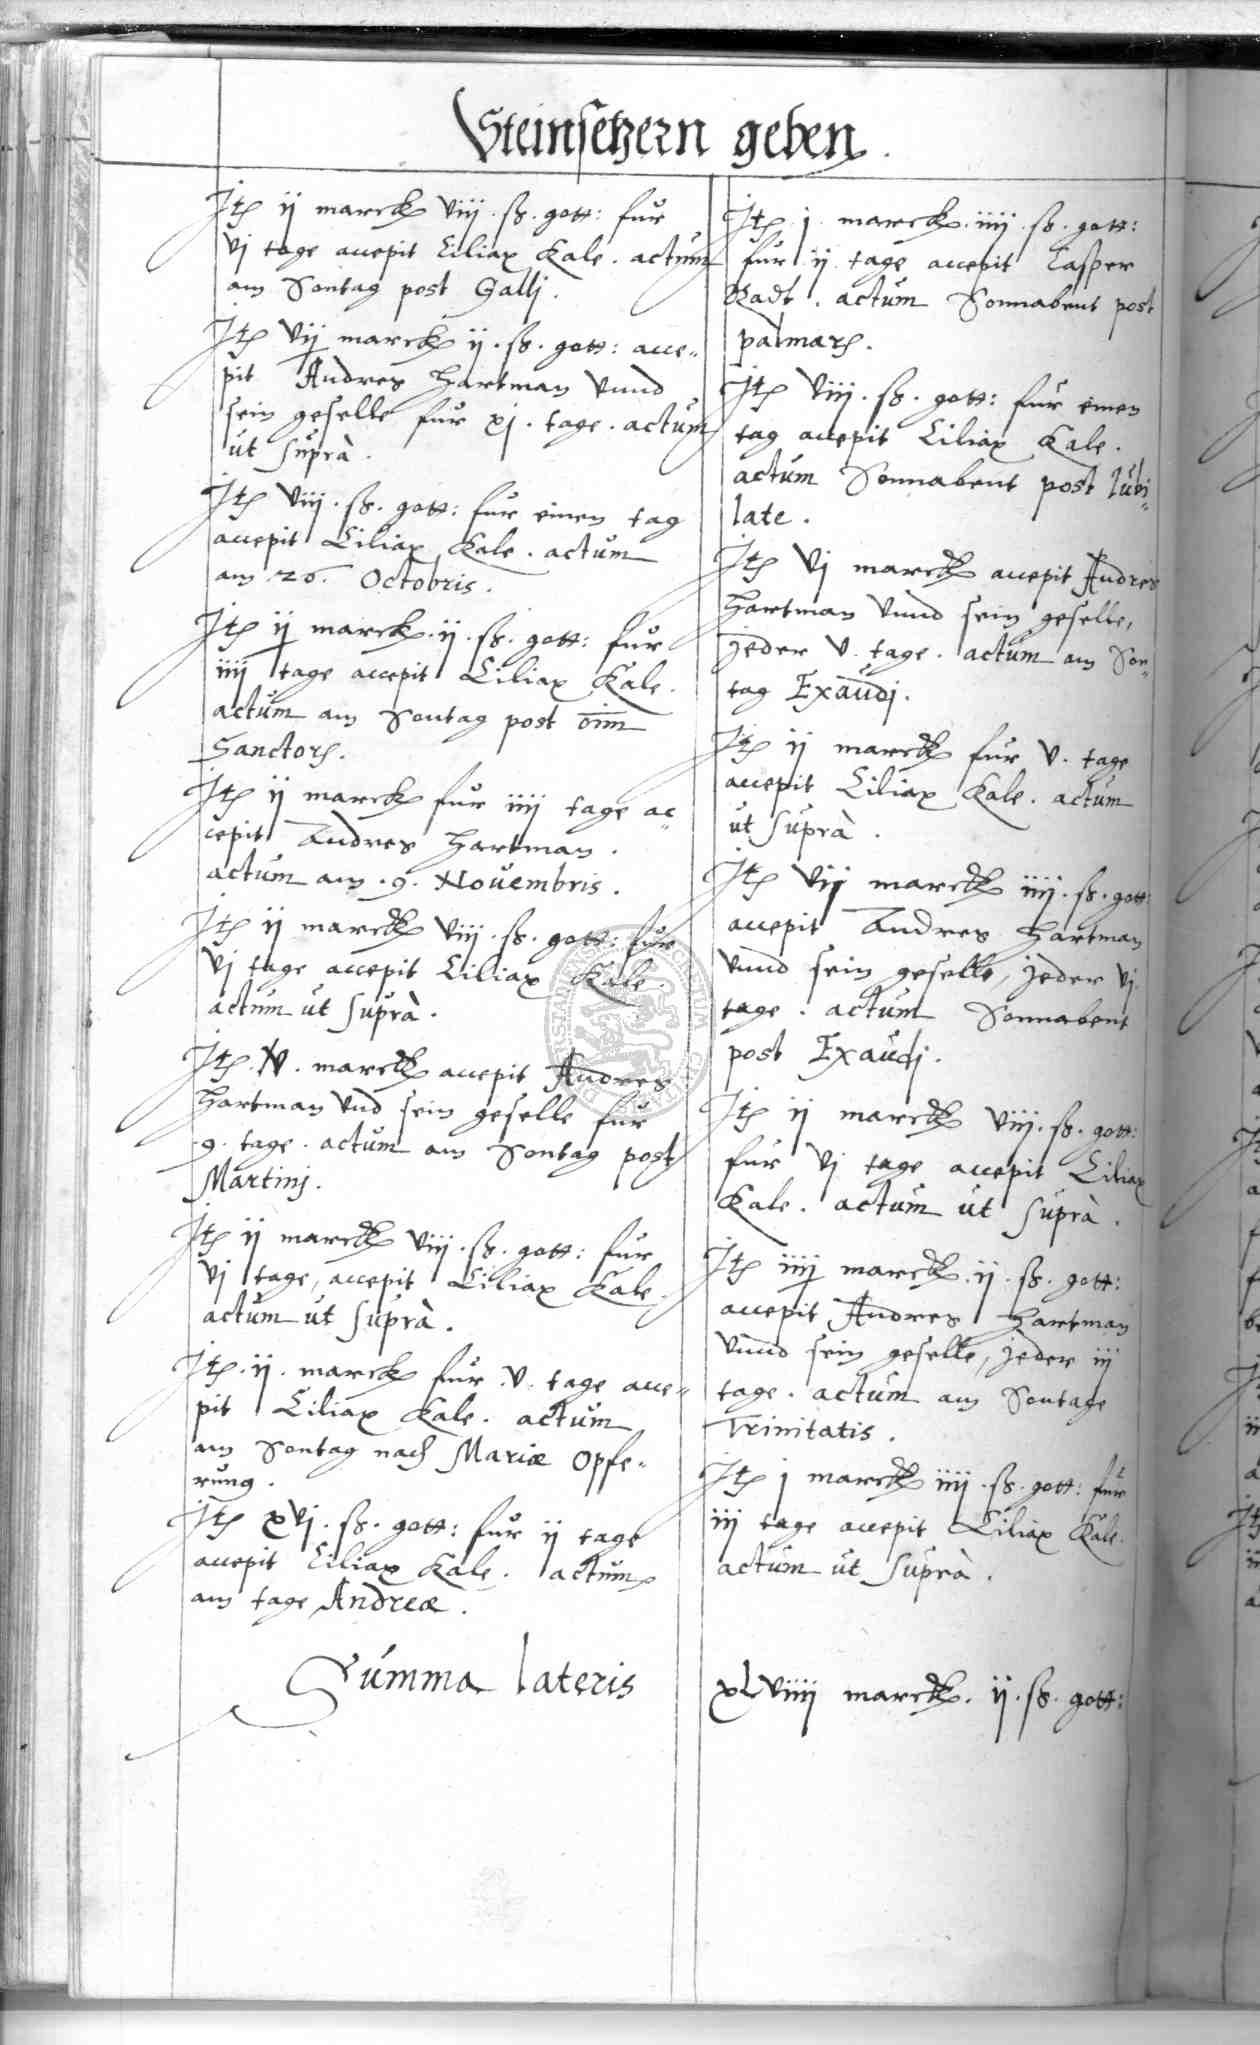 Steinsetzern geben.
Itē ij marck viij. ß. gott: fur
vj tage accepit Ciliax Kale. actum
am Sontag post Galli.
Itē vij marck ij. ß. gott: acce-
pit Andres Hartman vnnd
sein geselle fur xj. tage. actum
ut suprà.
Itē viij. ß. gott: fur einen tag
accepit Ciliax Kale. actum
am 26. Octobris.
Itē ij marck. ij. ß. gott: fur
iiij tage accepit Ciliax Kale.
actum am Sontag post oīm
Sanctorꝭ.
Itē ij marck fur iiij tage ac-
cepit Andres Hartman.
actum am .9. Novembris.
Itē ij marck viij. ß. gott: fur
vj tage accepit Ciliax Kale.
actum ut suprà.
Itē. N. marck accepit Andres
Hartman vnd sein geselle fur
.9. tage. actum am Sontag post
Martinj.
Itē ij marck viij. ß. gott: fur
vj tage, accepit Ciliax Kale.
actum ut suprà.
Itē. ij. marck fur .v. tage acce-
pit Ciliax Kale. actum
am Sontag nach Mariæ Opfe-
rung.
Itē xvj. ß. gott: fur ij tage
accepit Ciliax Kale. actum
am tage Andreæ.
Summa lateris
Itē. j. marck. iiij. ß. gott:
fur ij. tage accepit Casper
Radt. actum Sonnabent post
palmarꝭ.
Itē viij. ß. gott: fur einen
tag accepit Ciliax Kale.
actum Sonnabent post Jubi-
late.
Itē vj marck accepit Andres
Hartman vnnd sein geselle,
jeder v. tage. actum am Son-
tag Exaudj.
Itē ij marck fur v. tage
accepit Ciliax Kale. actum
ut suprà.
Itē vij marck iiij. ß. gott:
accepit Andres Hartman
vnnd sein geselle, jeder vj
tage. actum Sonnabent
post Exaudj.
Itē ij marck viij. ß. gott:
fur vj tage accepit Ciliax
Kale. actum ut suprà.
Itē iiij marck. ij. ß. gott:
accepit Andres Hartman
vnnd sein geselle, jeder iij
tage. actum am Sontage
Trinitatis.
Itē j marck iiij. ß. gott: fur
iij tage accepit Ciliax Kale.
actum ut suprà.
xLviiij marck. ij. ß. gott: